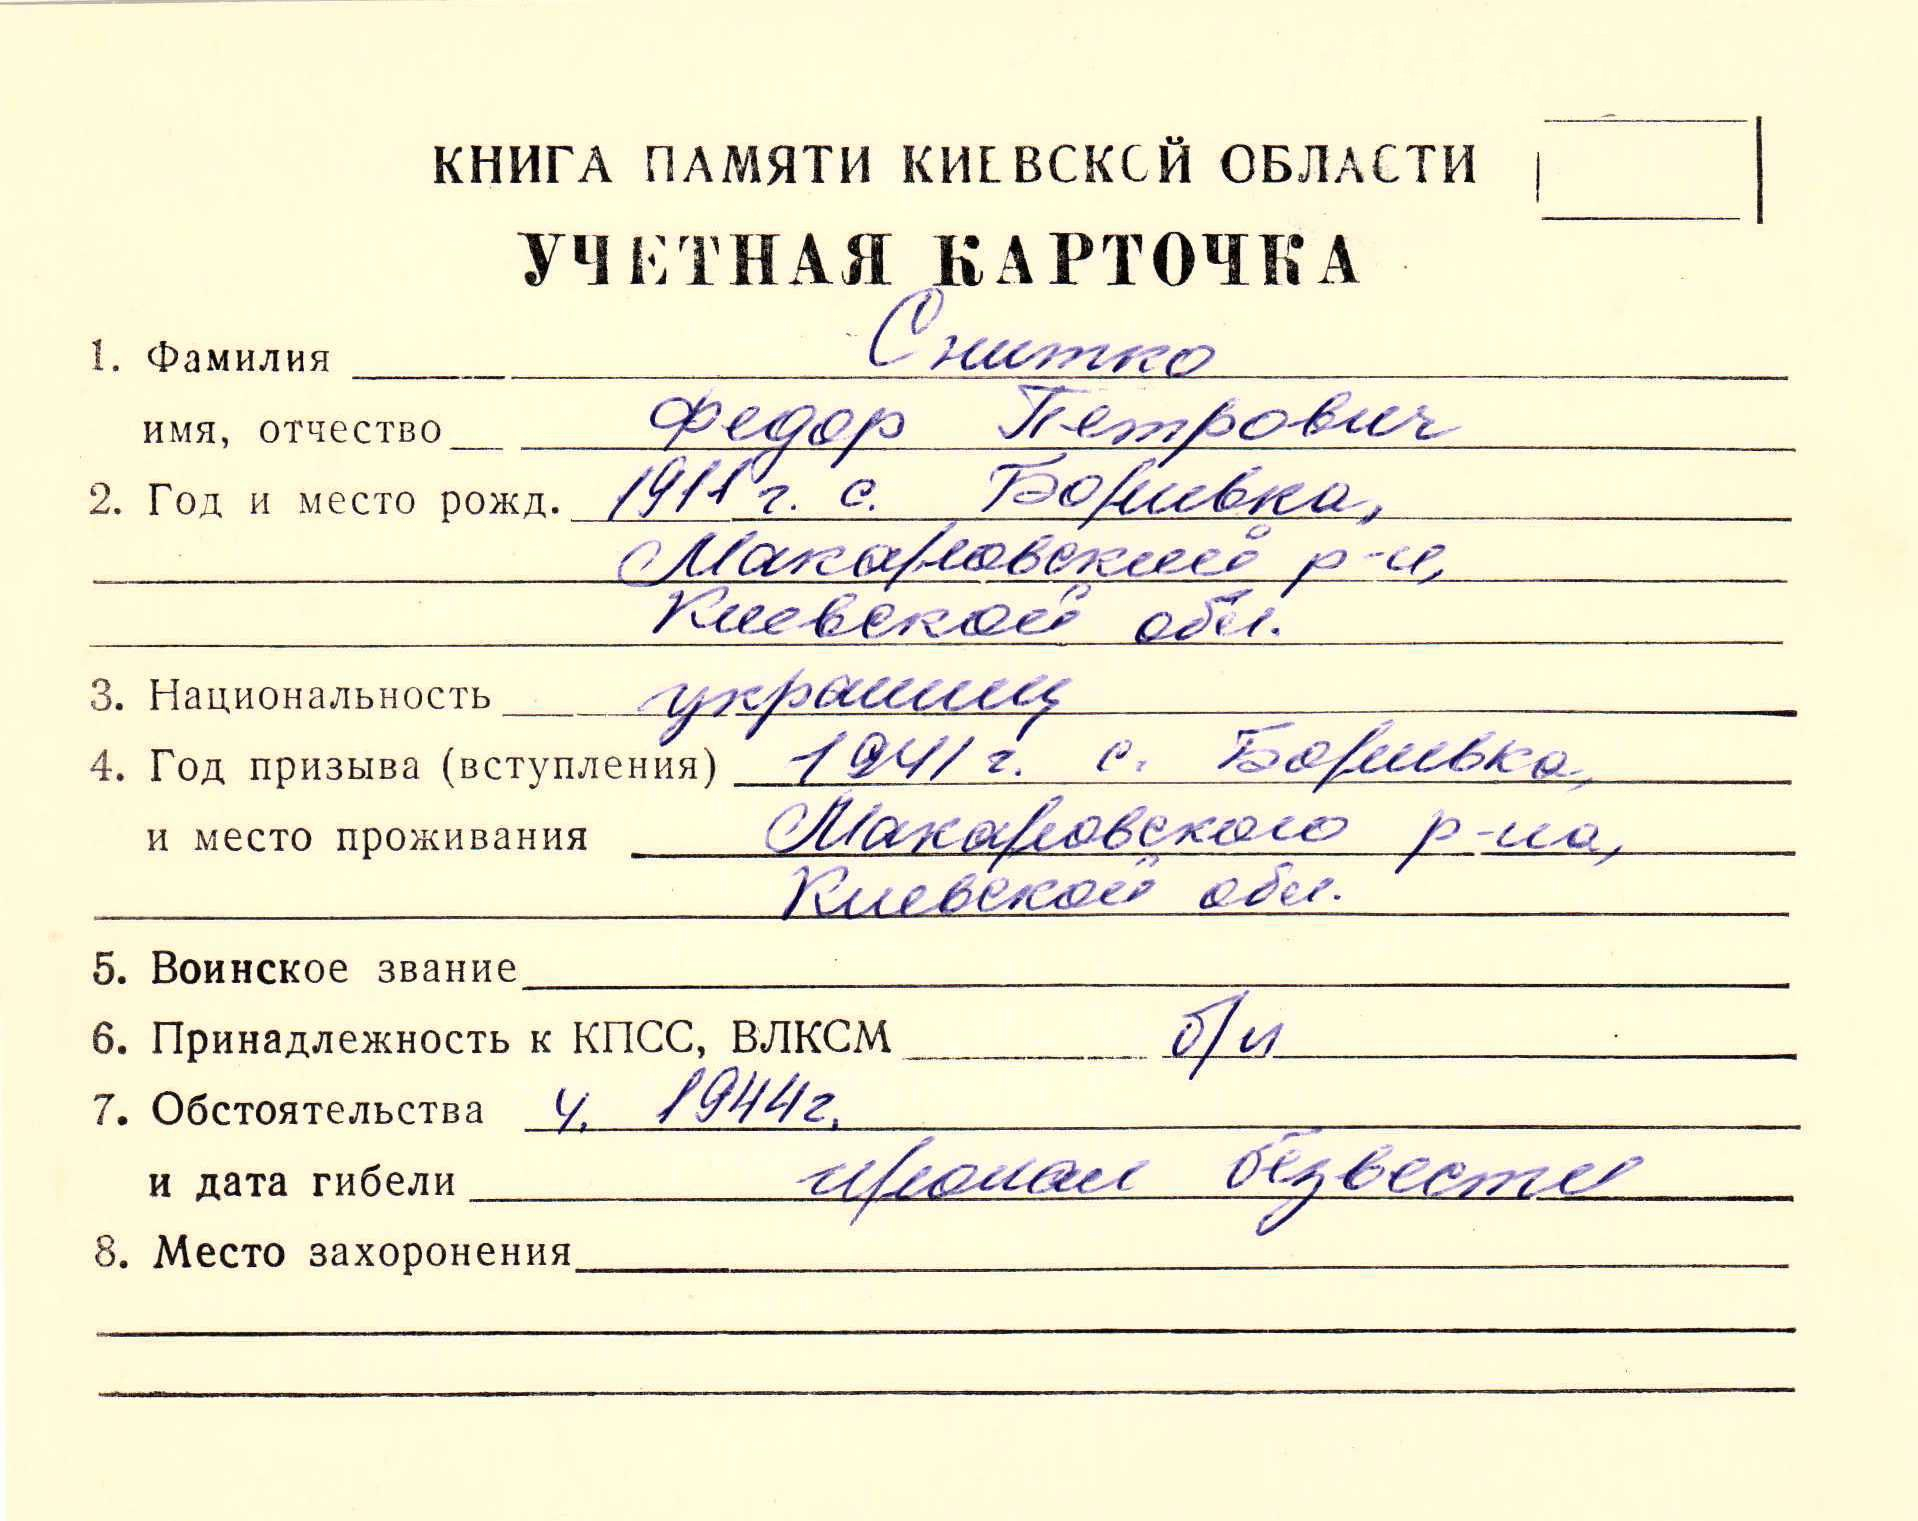 КНИГА ПАМЯТИ КИЕВСКОЙ ОБЛАСТИ
УЧЕТНАЯ КАРТОЧКА
1. Фамилия Снитко
имя, отчество Федор Петрович
2. Год и место рожд. 1911 г. с. Боривка,
Макаровский р-н,
Киевской обл.
3. Национальность украинец
4. Год призыва (вступления) 1941 г. с. Боривка,
и место проживания Макаровского р-на,
Киевской обл.
5. Воинское звание
6. Принадлежность к КПСС, ВЛКСМ б/п
7. Обстоятельства 4. 1944г.
и дата гибели пропал безвести
8. Место захоронения